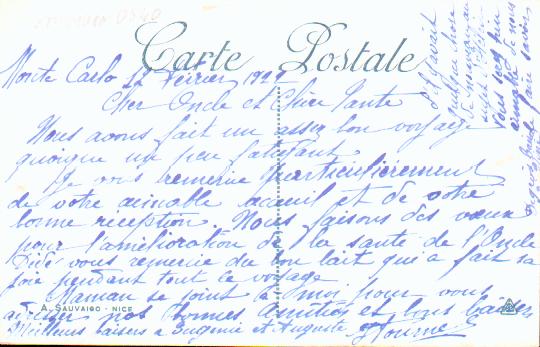 Carte Postale
Monte Carlo 12 Février
Cher Oncle et Chère Tante
Nous avons fait un assez bon voyage
quoique un peu fatigant
Je vous remercie particulièrement
de votre aimable accueil et de votre
bonne réception. Nous faisons des vœux
pour l'amélioration de la santé de l'Oncle
Didé vous remercie du bon lait qui a fait sa
joie pendant tout le voyage
Maman se joint à moi pour vous
adresser nos bonnes amitiés et bons baisers
Meilleurs baisers à Eugénie et Auguste
A. SAUVAIGO - NICE
S'il y avait
quelque chose
de
vous
aimable de nous
faire savoir